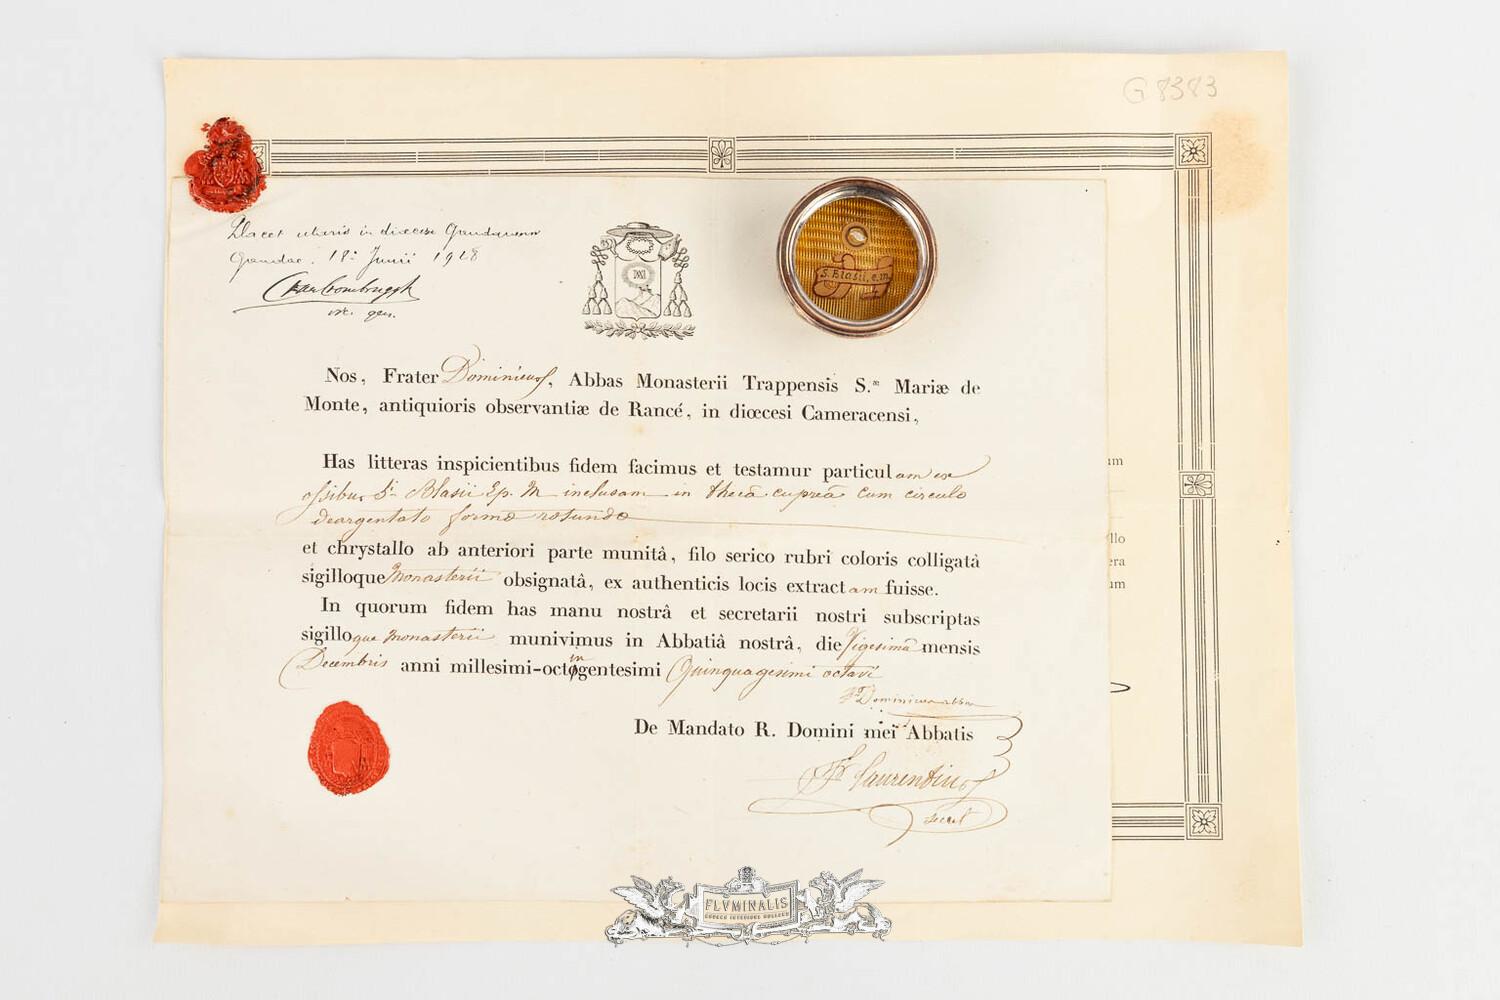 G 8383
Placet uti in diœcesi Gandavensi
Gandae. 18ª Junii 1928
vic. gen.
S. Blasii. e. m.
Nos, Frater Dominicus, Abbas Monasterii Trappensis S.æ Mariæ de
Monte, antiquioris observantiæ de Rancé, in diœcesi Cameracensi,
Has litteras inspicientibus fidem facimus et testamur particulam ex
ossibus Sti Blasii Ep. M inclusam in thecâ cupreâ cum circulo
deargentato formæ rotundæ
et chrystallo ab anteriori parte munitâ, filo serico rubri coloris colligatâ
sigilloque Monasterii obsignatâ, ex authenticis locis extractam fuisse.
In quorum fidem has manu nostrâ et secretarii nostri subscriptas
sigilloque Monasterii munivimus in Abbatiâ nostrâ, die Vigesimâ mensis
Decembris anni millesimi-octingentesimi Quinquagesimi octavi
fr Dominicus abbas
De Mandato R. Domini mei Abbatis
Fr Laurentius
secret
um
llo
era
um
FLVMINALIS